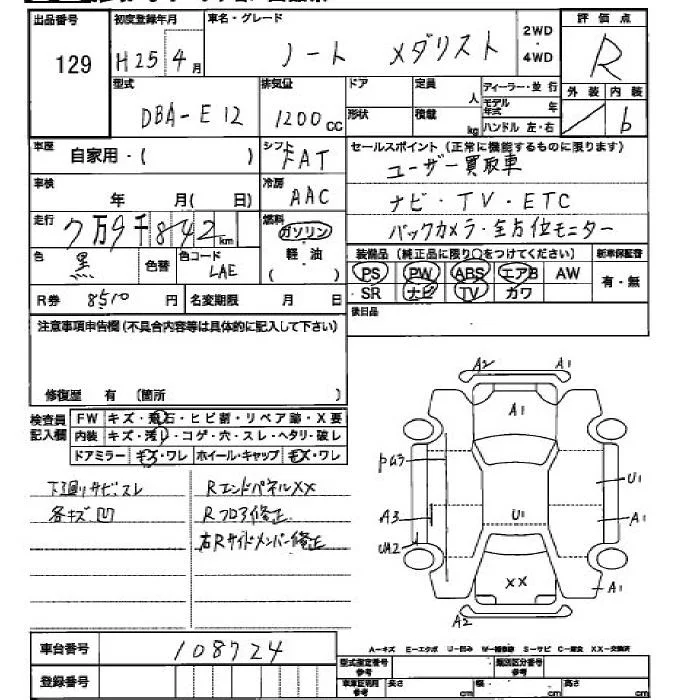 出品番号 初度登録年月 車名・グレード 2WD ・ 4WD 評価点
129 H25 4月 ノート メダリスト R
型式 排気量 ドア 定員 人 ディーラー・並行 外装 内装
DBA-E12 1200cc 形状 積載 kg モデル年式 年 ／ b
ハンドル 左・右
車歴 自家用・( ) シフト FAT セールスポイント(正常に機能するものに限ります)
ユーザー買取車
車検 年 月( 日) 冷房 AAC ナビ・TV・ETC
走行 7万9千842km 燃料 ガソリン バックカメラ・全方位モニター
軽・油
( )
色 黒 色替 色コード LAE 装備品(純正品に限り○をつけてください) 新車保証書
PS PW ABS エアB AW 有・無
R券 8510円 名変期限 月 日 SR ナビ TV カワ
注意事項申告欄(不具合内容等は具体的に記入して下さい) 後日品
修復歴 有 (箇所 )
検査員記入欄 FW キズ・飛石・ヒビ割・リペア跡・X要
内装 キズ・汚レ・コゲ・穴・スレ・ヘタリ・破レ
ドアミラー キズ・ワレ ホイール・キャップ キズ・ワレ
下廻リサビスレ RエンドパネルXX
各キズ凹 Rフロア修正
右Rサイドメンバー修正
A2 A1
A1
U1
A3 U1 A1
UA2
XX A1
A2
車台番号 108724
A-キズ E-エクボ U-凹み W-補修跡 S-サビ C-腐食 XX-交換済
登録番号 型式指定番号参考 類別区分番号参考
車庫証明用参考 長さ cm 幅 cm 高さ cm